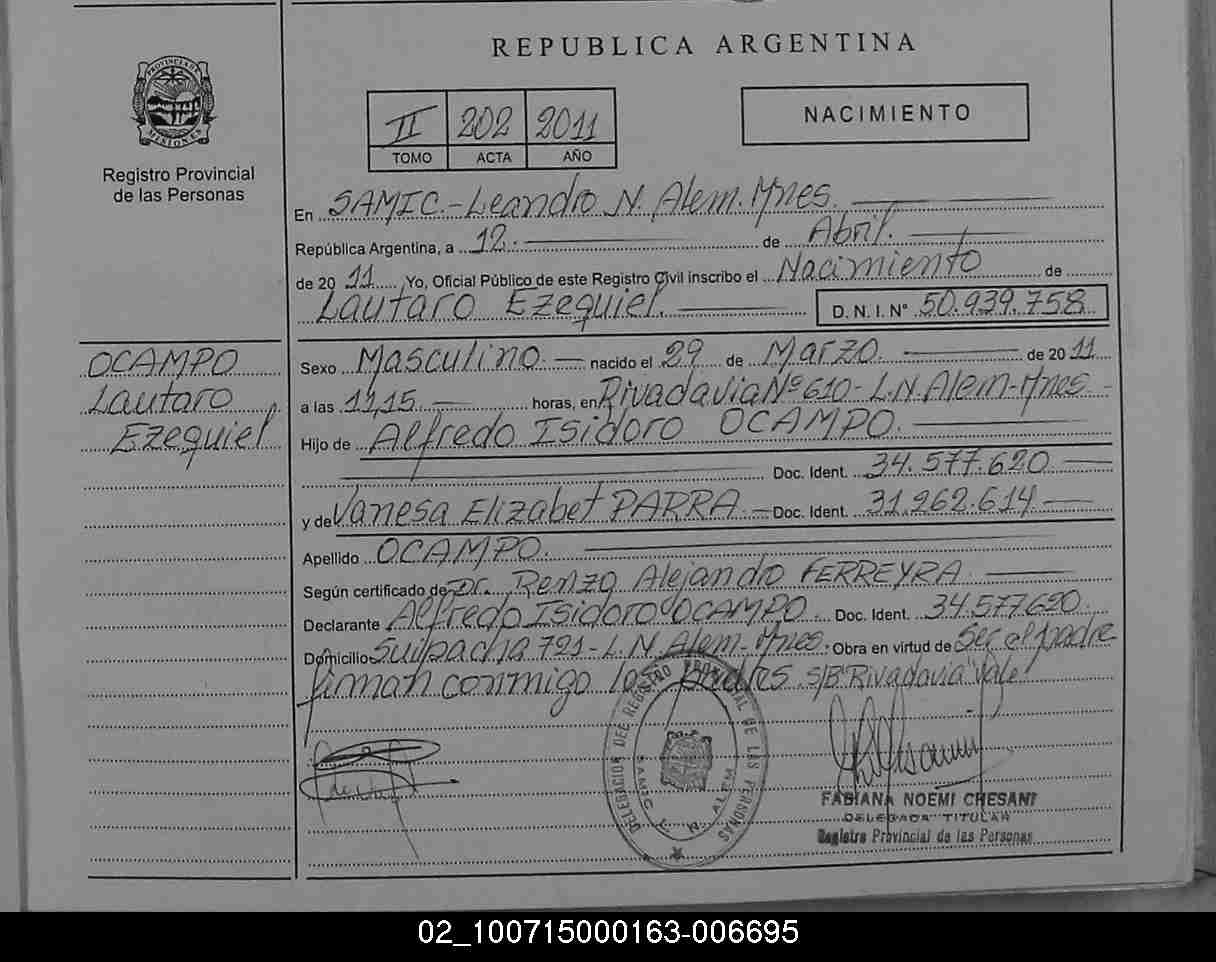 REPUBLICA ARGENTINA
PROVINCIA DE MISIONES
Registro Provincial
de las Personas
II 202 2011
TOMO ACTA AÑO
NACIMIENTO
En SAMIC.-Leandro N. Alem. Mnes.
República Argentina, a 12. de Abril.
de 2011 Yo, Oficial Público de este Registro Civil inscribo el Nacimiento de
Lautaro Ezequiel. D. N. I. N° 50.939.758
OCAMPO
Lautaro
Ezequiel
Sexo Masculino. nacido el 29 de Marzo. de 2011
a las 11,15. horas, en Rivadavia Nº 610- L.N. Alem-Mnes-
Hijo de Alfredo Isidoro OCAMPO.
Doc. Ident. 34.577.620
y de Vanesa Elizabet PARRA Doc. Ident. 31.262.614
Apellido OCAMPO.
Según certificado de Dr. Renzo Alejandro FERREYRA
Declarante Alfredo Isidoro OCAMPO Doc. Ident. 34.577.620
Domicilio Suipacha 721-L.N. Alem-Mnes. Obra en virtud de Ser el padre
firman conmigo los padres. S/B "Rivadavia" Vale
DELEGACION DEL REGISTRO PROVINCIAL DE LAS PERSONAS
SAMIC L. N. ALEM
FABIANA NOEMI CHESANI
DELEGADA TITULAR
Registro Provincial de las Personas
02_100715000163-006695